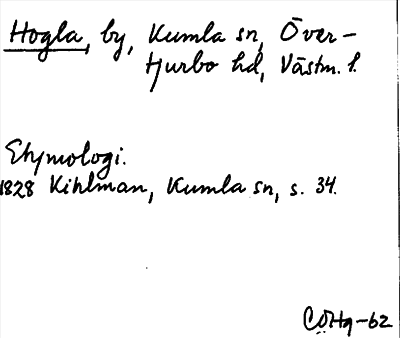 Hogla, by, Kumla sn, Över-
tjurbo hd, Västm. l.
Etymologi.
1828 Kihlman, Kumla sn, s. 34.
CÖHg-62